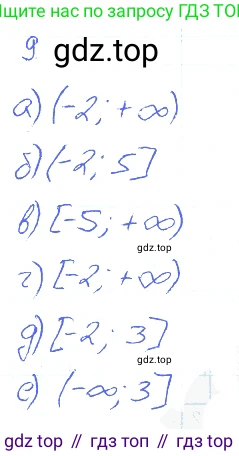 Ищите нас по запросу ГДЗ ТОП
9 gdz.top
а) (-2; +∞)
б) (-2; 5]
в) [-5; +∞)
gdz.top
г) [-2; +∞)
д) [-2; 3]
gdz.top
е) (-∞; 3]
gdz.top // гдз топ // гдз.топ